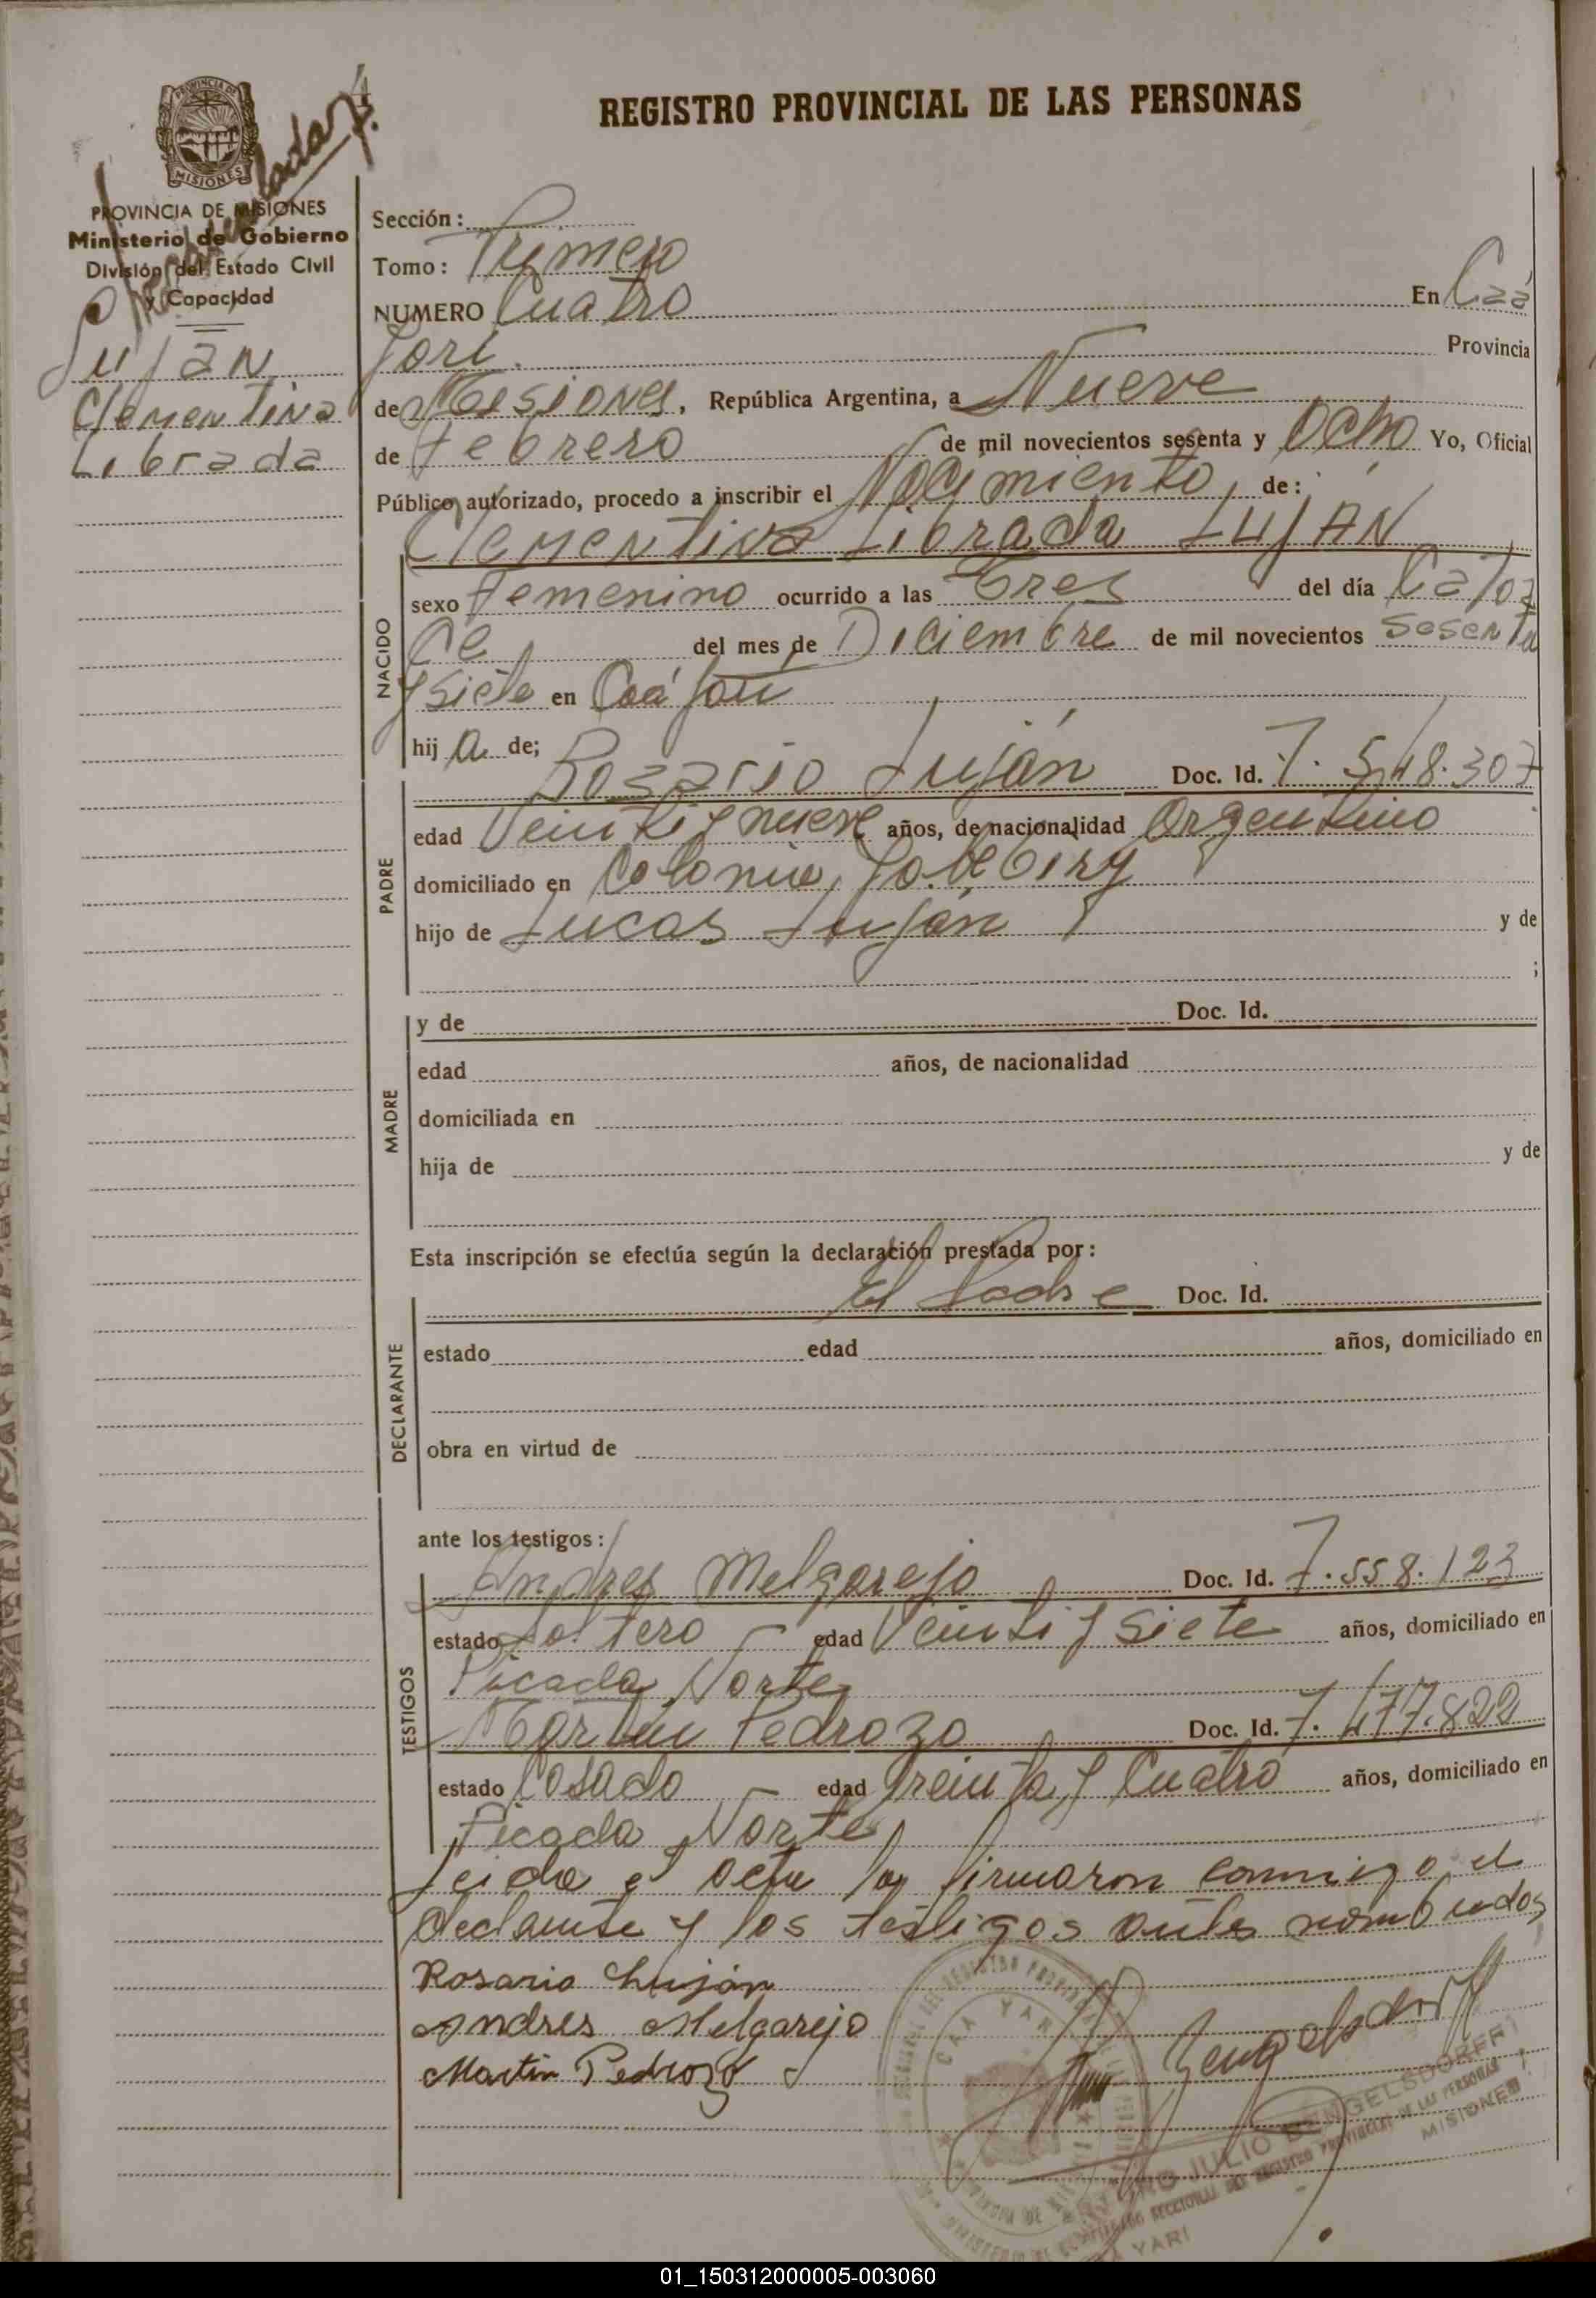 REGISTRO PROVINCIAL DE LAS PERSONAS
PROVINCIA DE MISIONES
PROVINCIA DE MISIONES
Ministerio de Gobierno
División del Estado Civil
y Capacidad
Luján
Clementina
Librada
Sección:
Tomo: Primero
NUMERO Cuatro En Caá
Yarí. Provincia
de Misiones, República Argentina, a Nueve
de Febrero de mil novecientos sesenta y Ocho Yo, Oficial
Público autorizado, procedo a inscribir el Nacimiento, de:
Clementina Librada LUJAN
NACIDO
sexo Femenino ocurrido a las Tres del día Cator
ce del mes de Diciembre de mil novecientos sesenta
y siete en Caá Yarí
hij a de;
PADRE
Rosario Luján Doc. Id. 7.548.307
edad Veinti y nueve años, de nacionalidad Argentino
domiciliado en Colonia,
hijo de Lucas Luján y de
;
MADRE
y de Doc. Id.
edad años, de nacionalidad
domiciliada en
hija de y de
Esta inscripción se efectúa según la declaración prestada por:
DECLARANTE
El Padre Doc. Id.
estado edad años, domiciliado en
obra en virtud de
ante los testigos:
TESTIGOS
Andres Melgarejo Doc. Id. 7.558.123
estado Soltero edad Veinti y siete años, domiciliado en
Picada Norte
Martin Pedrozo Doc. Id. 7.477.822
estado Casado edad Treinta y Cuatro años, domiciliado en
Picada Norte
Leida el acta la firmaron conmigo el
declarante y los testigos antes nombrados
Rosario Luján
Andres Melgarejo
Martin Pedrozo
Engelsdorff
CAA YARI
JULIO ENGELSDORFF
DELEGADO SECCIONAL DEL REGISTRO PROVINCIAL DE LAS PERSONAS
YARI MISIONES
01_150312000005-003060